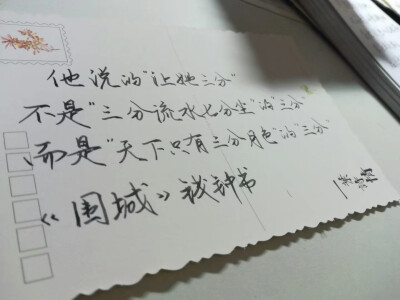 他说的“让她三分”
不是“三分流水七分尘”的“三分”
而是“天下只有三分月色”的“三分”
《围城》钱钟书